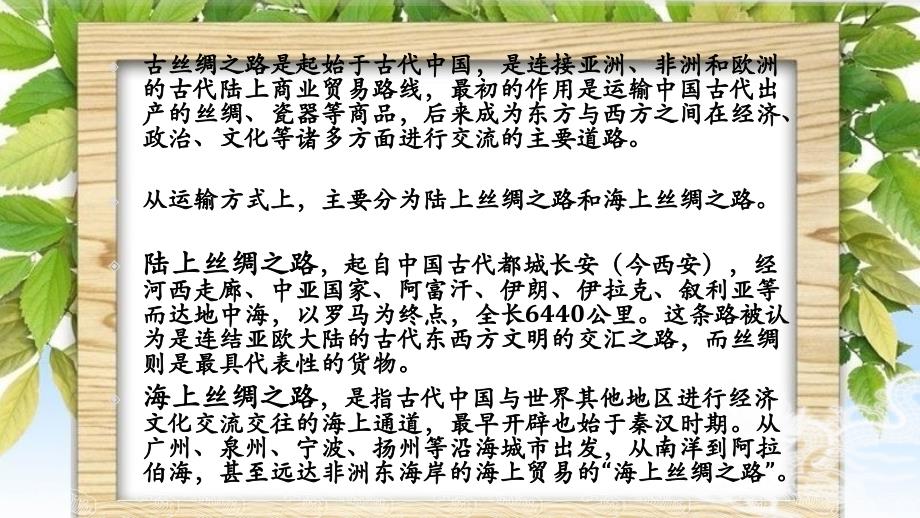 古丝绸之路是起始于古代中国，是连接亚洲、非洲和欧洲
的古代陆上商业贸易路线，最初的作用是运输中国古代出
产的丝绸、瓷器等商品，后来成为东方与西方之间在经济、
政治、文化等诸多方面进行交流的主要道路。
从运输方式上，主要分为陆上丝绸之路和海上丝绸之路。
陆上丝绸之路，起自中国古代都城长安（今西安），经
河西走廊、中亚国家、阿富汗、伊朗、伊拉克、叙利亚等
而达地中海，以罗马为终点，全长6440公里。这条路被认
为是连结亚欧大陆的古代东西方文明的交汇之路，而丝绸
则是最具代表性的货物。
海上丝绸之路，是指古代中国与世界其他地区进行经济
文化交流交往的海上通道，最早开辟也始于秦汉时期。从
广州、泉州、宁波、扬州等沿海城市出发，从南洋到阿拉
伯海，甚至远达非洲东海岸的海上贸易的“海上丝绸之路”。